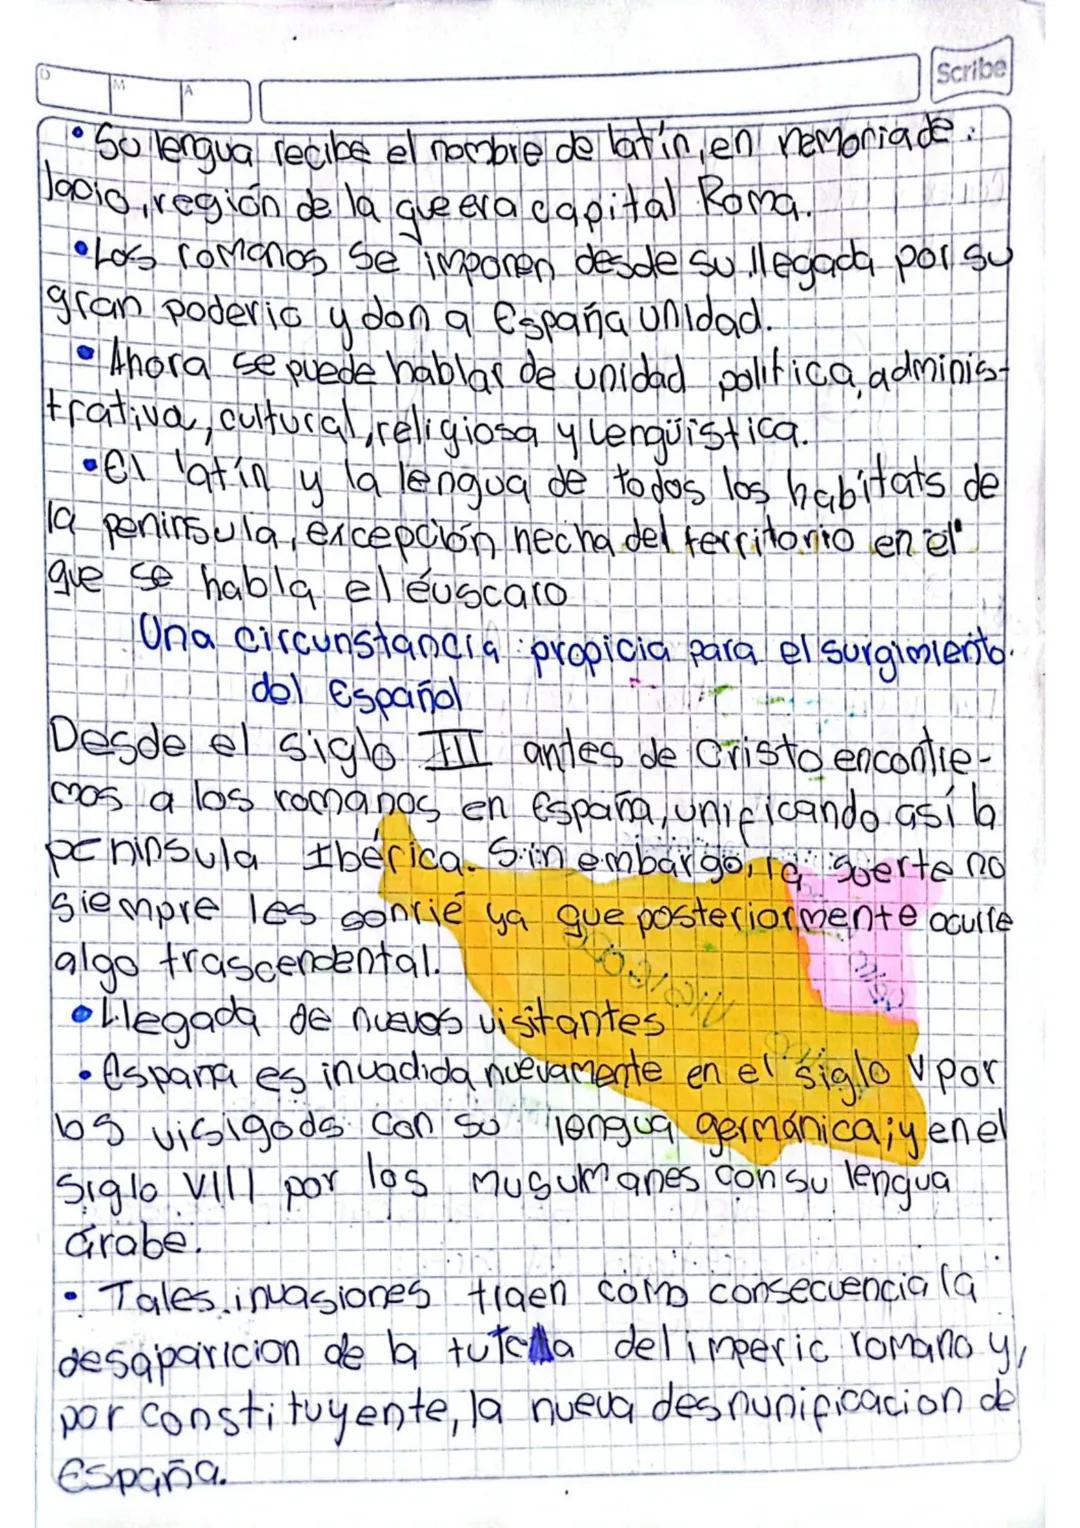 D
M
A
Scribe
• Su lengua recibe el nombre de latín, en nemoria de
lacio, región de la que era capital Roma.
• Los romanos se imponen desde su llegada por su
gran poderio y don a España unidad.
• Ahora se puede hablar de unidad politica, adminis-
trativa, cultural, religiosa y lengüistica.
• El latín y la lengua de todos los habitats de
la peninsula, excepción hecha del territorio en el
que se habla el éuscaro
Una circunstancia propicia para el surgimiento
del Español
Desde el siglo III antes de Cristo encontre-
mos a los romanos en España, unificando así la
peninsula Ibérica. Sin embargo, la suerte no
siempre les sonríe ya que posteriormente ocurre
algo trascendental.
• Llegada de nuevos visitantes
• España es invadida nuevamente en el siglo V por
los visigods con su lengua germánica; y en el
siglo VIII por los musumanes con su lengua
árabe.
• Tales invasiones traen como consecuencia la
desaparicion de la tutela del imperio romano y,
por constituyente, la nueva desnunificacion de
España.